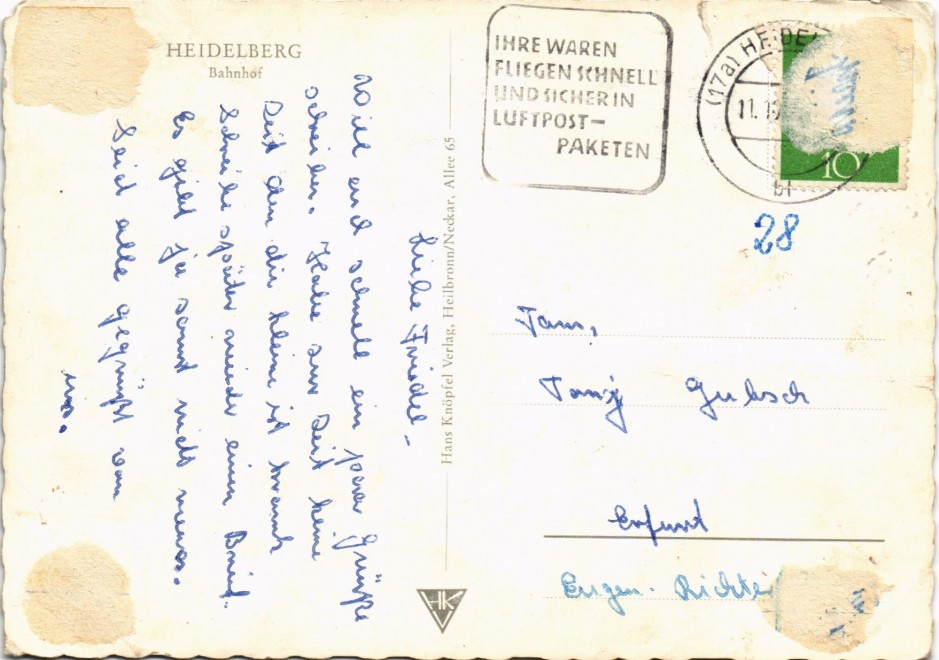 HEIDELBERG
Bahnhof
Liebe Friedel –
Will euch schnell ein paar Grüße
schreiben. Habe zur Zeit keine
Zeit den die kleine ist krank
Schreibe später wieder einen Brief.
Es gibt ja sonst nichts neues.
Seid alle gegrüßt von
uns.
Hans Knöpfel Verlag, Heilbronn/Neckar, Allee 65
HK
V
IHRE WAREN
FLIEGEN SCHNELL
UND SICHER IN
LUFTPOST-
PAKETEN
(17a) HEIDEL
11. 1
bf
10
28
Fam,
Gubsch
Erfurt
Eugen. Richter